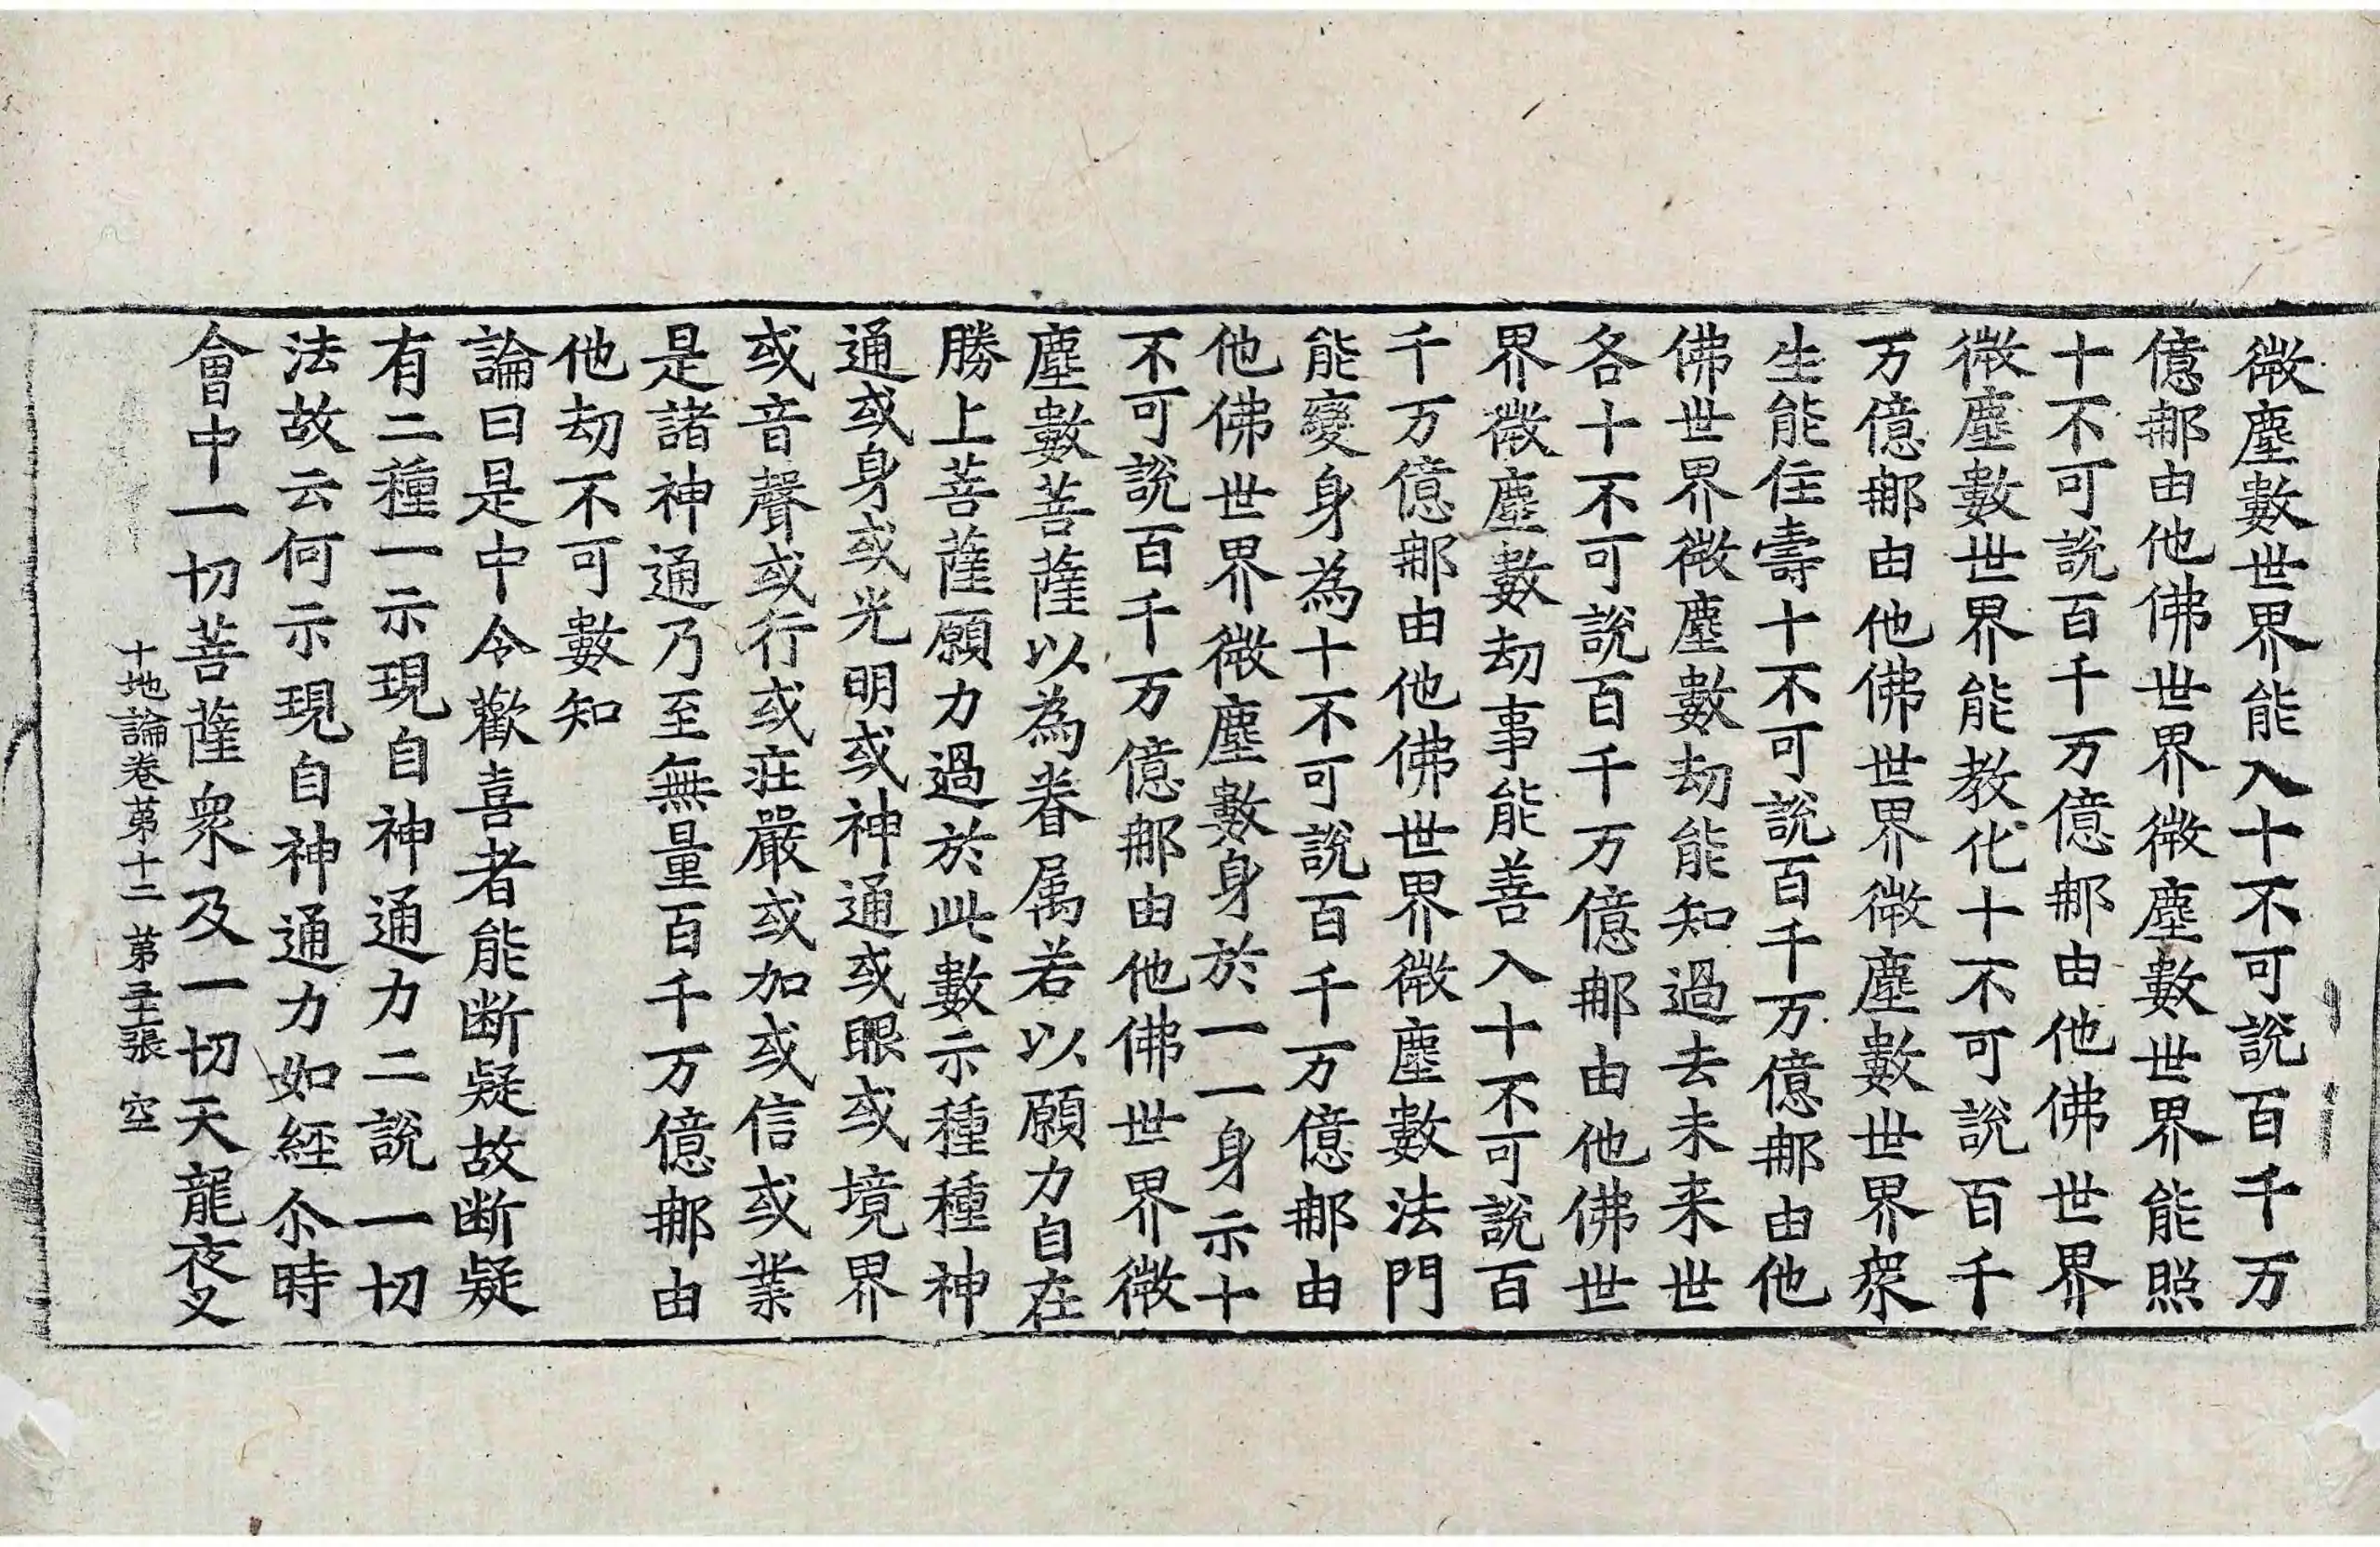 微塵數世界能入十不可說百千万
億那由他佛世界微塵數世界能照
十不可說百千万億那由他佛世界
微塵數世界能教化十不可說百千
万億那由他佛世界微塵數世界衆
生能住壽十不可說百千万億那由他
佛世界微塵數劫能知過去未来世
各十不可說百千万億那由他佛世
界微塵數劫事能善入十不可說百
千万億那由他佛世界微塵數法門
能變身為十不可說百千万億那由
他佛世界微塵數身於一一身示十
不可說百千万億那由他佛世界微
塵數菩薩以為眷属若以願力自在
勝上菩薩願力過於此數示種種神
通或身或光明或神通或眼或境界
或音聲或行或莊嚴或加或信或業
是諸神通乃至無量百千万億那由
他劫不可數知
論曰是中令歡喜者能断疑故断疑
有二種一示現自神通力二說一切
法故云何示現自神通力如經尒時
會中一切菩薩衆及一切天龍夜叉
十地論卷苐十二 苐 張 空